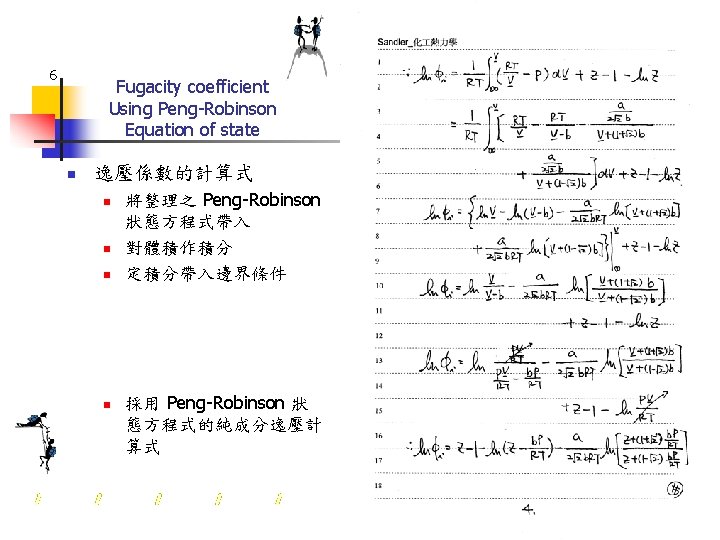 6
Fugacity coefficient
Using Peng-Robinson
Equation of state
逸壓係數的計算式
將整理之 Peng-Robinson
狀態方程式帶入
對體積作積分
定積分帶入邊界條件
採用 Peng-Robinson 狀
態方程式的純成分逸壓計
算式
Sandler_化工熱力學
1
2
3
4
5
6
7
8
9
10
11
12
13
14
15
16
17
18
∵ lnφi = 1/RT ∫_∞^V (RT/V - P) dV + Z - 1 - lnZ
= 1/RT ∫_∞^V [RT/V - RT/(V-b) - (a/(2√2 b))/(V+(1+√2)b)
+ (a/(2√2 b))/(V+(1-√2)b)] dV + Z - 1 - lnZ
lnφi = {lnV - ln(V-b) - a/(2√2 bRT) ln[V+(1+√2)b]
+ a/(2√2 bRT) ln[V+(1-√2)b]}|_∞^V + Z - 1 - lnZ
lnφi = ln V/(V-b) - a/(2√2 bRT) ln[(V+(1+√2)b)/(V+(1-√2)b)]
+ Z - 1 - lnZ
lnφi = ln (PV/RT)/(PV/RT - bP/RT) - a/(2√2 bRT) ln[(V+(1+√2)b)/(V+(1-√2)b)]
+ Z - 1 - ln PV/RT
∴ lnφi = Z - 1 - ln(Z - bP/RT) - a/(2√2 bRT) ln[(Z+(1+√2)bP/RT)/(Z+(1-√2)bP/RT)]
4.